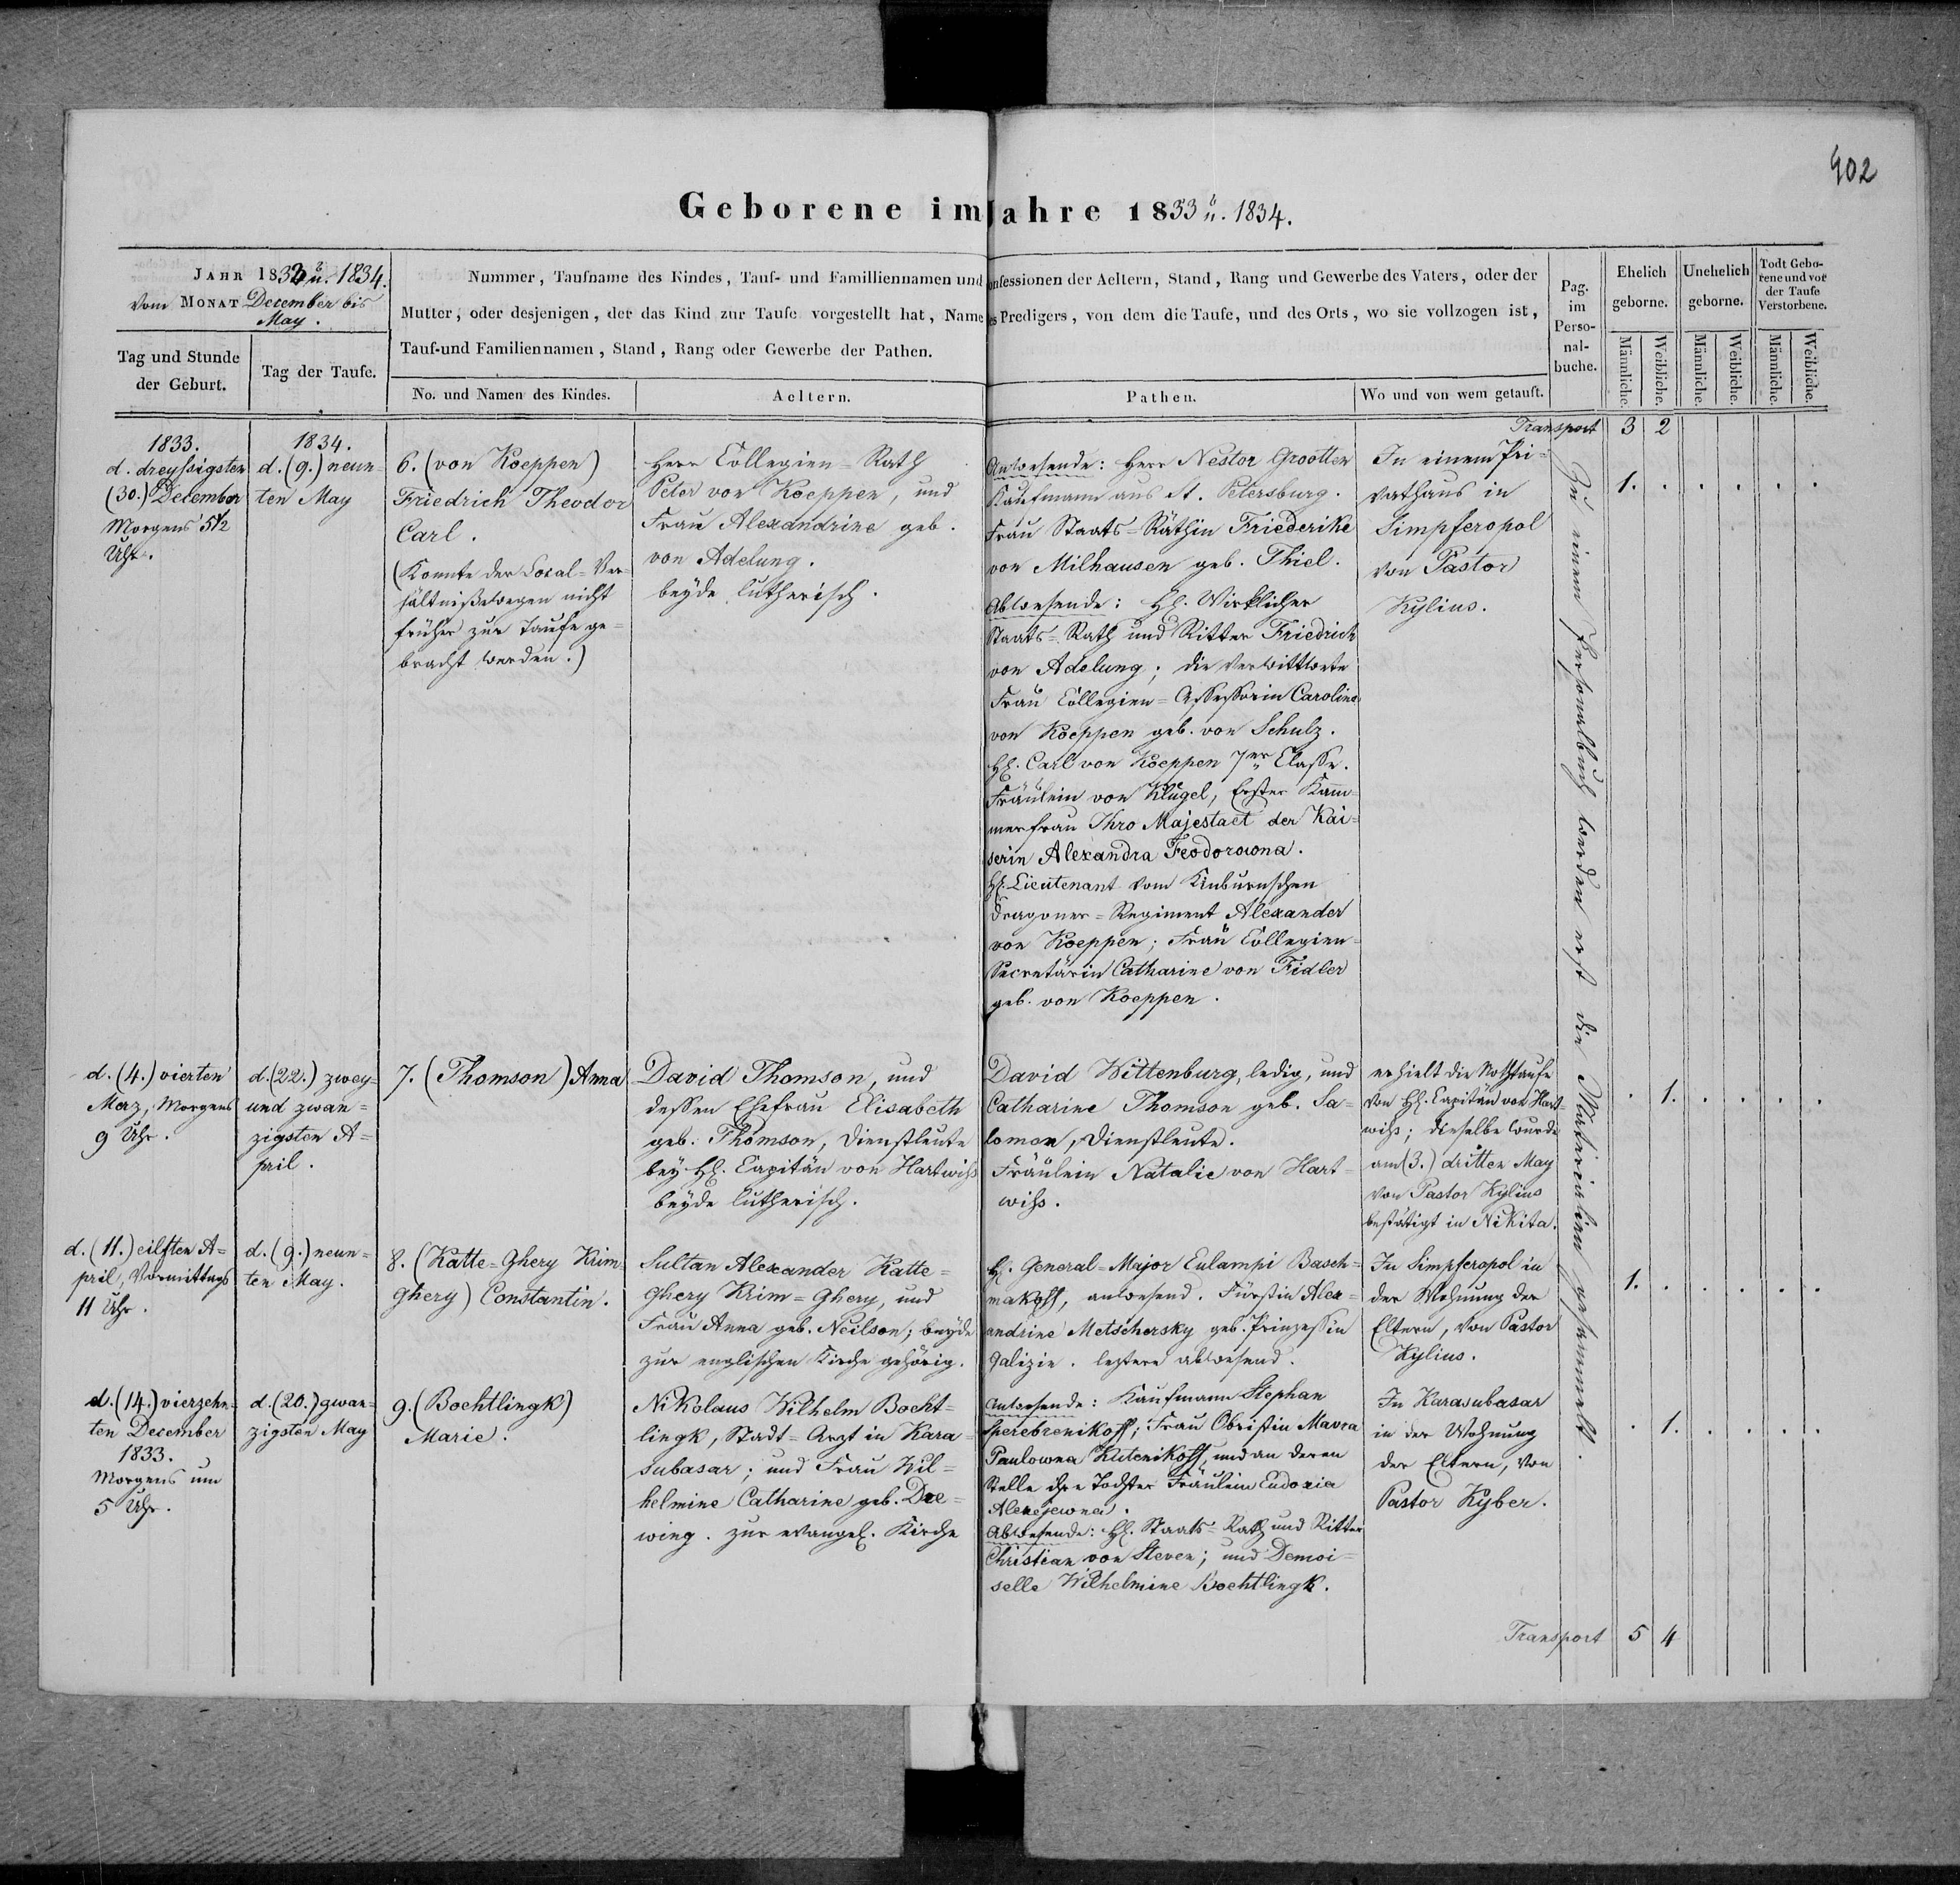 902
Geborene im Jahre 1833 u. 1834.
JAHR 1833 u. 1834.
vom MONAT December bis
May.
Tag und Stunde
der Geburt.
Tag der Taufe.
Nummer, Taufname des Kindes, Tauf- und Familliennamen und onfessionen der Aeltern, Stand, Rang und Gewerbe des Vaters, oder der
Mutter, oder desjenigen, der das Kind zur Taufe vorgestellt hat, Name es Predigers, von dem die Taufe, und des Orts, wo sie vollzogen ist,
Tauf-und Familiennamen, Stand, Rang oder Gewerbe der Pathen.
No. und Namen des Kindes.
Aeltern.
Pathen.
Wo und von wem getauft.
Pag.
im
Perso-
nal-
buche.
Ehelich
geborne.
Unehelich
geborne.
Todt Gebo-
rene und vor
der Taufe
Verstorbene.
Männliche.
Weibliche.
Männliche.
Weibliche.
Männliche.
Weibliche.
Transport 3 2
1833.
d. dreyssigsten
(30.) December
Morgens 5 1/2
Uhr.
1834.
d. (9.) neun-
ten May
6. (von Koeppen)
Friedrich Theodor
Carl.
(Konnte der Local-Ver-
hältniße wegen nicht
früher zur Taufe ge-
bracht werden.)
Herr Collegien-Rath
Peter von Koeppen, und
Frau Alexandrine geb.
von Adelung.
beyde lutherisch.
Anwesende: Herr Nestor Grootten
Kaufmann aus St. Petersburg.
Frau Staats-Räthin Friederike
von Milhausen geb. Thiel.
Abwesende: H. Wirklicher
Staats-Rath und Ritter Friedrich
von Adelung; die verwittwete
Frau Collegien-Assessorin Carolina
von Koeppen geb. von Schulz.
H. Carl von Koeppen 7er Classe.
Fräulein von Klügel, Erster Kam-
merfrau Ihro Majestaet der Kai-
serin Alexandra Feodorowna.
H. Lieutenant vom Kinburnschen
Dragoner-Regiment Alexander
von Koeppen; Frau Collegien-
Secretärin Catharine von Fidler
geb. von Koeppen.
In einem Pri-
vathaus in
Simpferopol
von Pastor
Kylius.
Zu einem Personalbuch werden erst die Materialien gesammelt.
1. . . . . .
d. (4.) vierten
Merz, Morgens
9 Uhr.
d. (22.) zwey-
und zwan-
zigsten A-
pril.
7. (Thomson) Anna
David Thomson, und
dessen Ehefrau Elisabeth
geb. Thomson, Dienstleute
bey H. Capitän von Hartwiss
beyde lutherisch.
David Wittenburg, ledig, und
Catharine Thomson geb. Sa-
lomon, Dienstleute.
Fräulein Natalie von Hart-
wiss.
erhielt die Nothtaufe
von H. Capitän von Hart-
wiss; dieselbe wurde
am (3.) dritten May
von Pastor Kylius
bestätigt in Nikita.
. 1. . . . .
d. (11.) eilften A-
pril, Vormittags
11 Uhr.
d. (9.) neun-
ten May.
8. (Katte-Ghery Krim-
ghery) Constantin.
Sultan Alexander Katte-
Ghery Krim-Ghery, und
Frau Anna geb. Neilson; beyde
zur englischen Kirche gehörig.
H. General-Major Eulampi Basch-
makoff, anwesend. Fürstin Alex-
andrine Metschersky geb. Prinzessin
Galizin. leztere abwesend.
In Simpferopol in
der Wohnung der
Eltern, von Pastor
Kylius.
1. . . . . .
d. (14.) vierzehn-
ten December
1833.
Morgens um
5 Uhr.
d. (20.) zwan-
zigsten May
9. (Boehtlingk)
Marie.
Nikolaus Wilhelm Boeht-
lingk, Stadt-Arzt in Kara-
subasar; und Frau Wil-
helmine Catharine geb. Dre-
wing. zur evangel. Kirche
Anwesende: Kaufmann Stephan
Sperebrenikoff; Frau Obristin Mavra
Paulowna Kutenikoff, und an deren
Stelle ihre Tochter Fräulein Eudoxia
Alexejewna.
Abwesende: H. Staats-Rath und Ritter
Christian von Steven; und Demoi-
selle Wilhelmine Boehtlingk.
In Karasubasar
in der Wohnung
der Eltern, von
Pastor Kyber.
. 1. . . . .
Transport 5 4